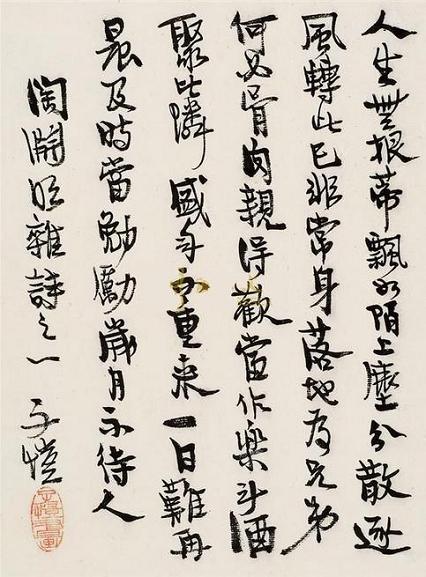 人生無根蒂飄如陌上塵分散逐
風轉此已非常身落地為兄弟
何必骨肉親得歡當作樂斗酒
聚比隣盛年不重來一日難再
晨及時當勉勵歲月不待人
陶淵明雜詩之一 子愷